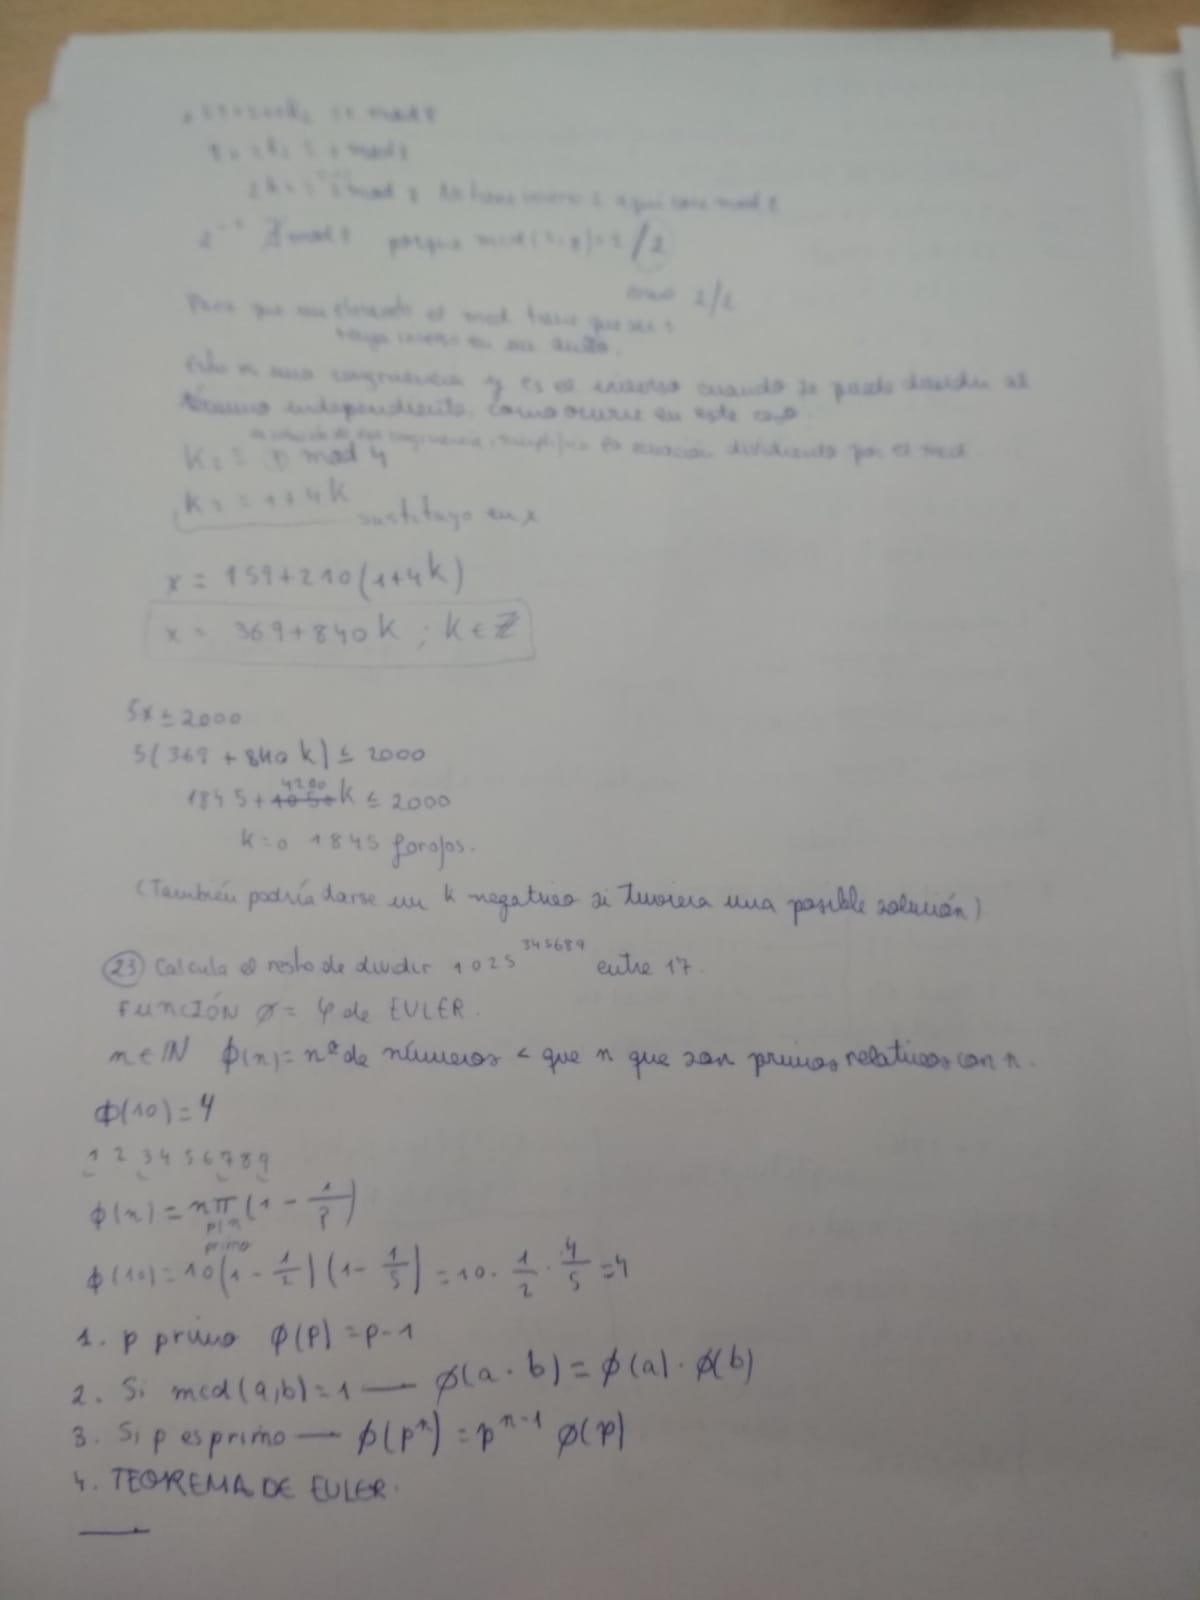 mod 8
mod 8
mod 8 no tiene inverso aquí mod 8
2⁻¹ ∄ mod 8 porque mcd(2,8)=2 /2
2/2
Para que un elemento el mcd tiene que ser 1
tenga inverso en un anillo.
Esto es una congruencia y es el inverso cuando se puede dividir al
término independiente, como ocurre en este caso.
congruencia, simplifico la ecuación dividiendo por el mcd
K₂ ≡ 1 mod 4
K₂ = 1+4K
sustituyo en x
x = 159+210(1+4k)
x = 369+840K ; K∈ℤ
5x ≤ 2000
5(369 + 840 k) ≤ 2000
1845 + 4200 k ≤ 2000
k=0 1845 forojos.
(También podría darse un k negativo si tuviera una posible solución)
23 Calcula el resto de dividir 1025^345689 entre 17.
FUNCIÓN Ø = φ de EULER.
n∈ℕ ϕ(n) = nº de números < que n que son primos relativos con n.
ϕ(10) = 4
1 2 3 4 5 6 7 8 9
ϕ(n) = n π (1 - 1/p)
p|n
primo
ϕ(10) = 10(1 - 1/2)(1 - 1/5) = 10 · 1/2 · 4/5 = 4
1. p primo ϕ(p) = p-1
2. Si mcd(a,b)=1 — ϕ(a · b) = ϕ(a) · ϕ(b)
3. Si p es primo — ϕ(pⁿ) = pⁿ⁻¹ ϕ(p)
4. TEOREMA DE EULER.